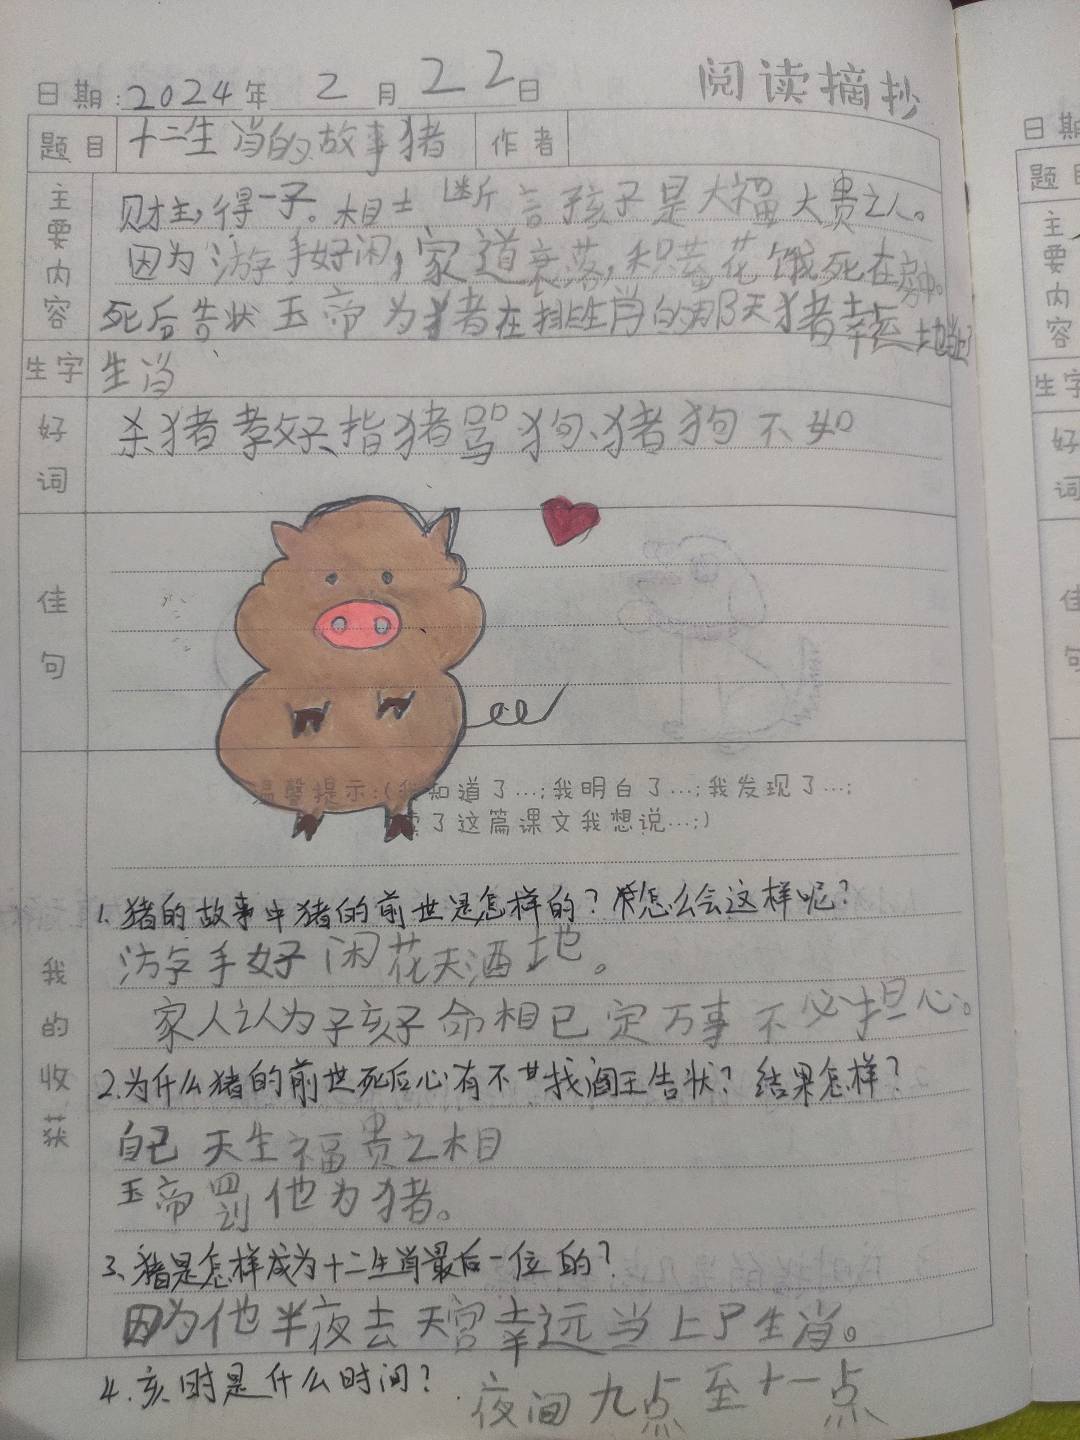 日期:2024年2月22日 阅读摘抄
题目 十二生肖的故事猪 作者
主要内容
财主,得一子。相士断言孩子是大福大贵之人。
因为游手好闲,家道衰落,和黄花饿死在
死后告状玉帝为猪在排生肖的那天猪幸运地
生字 生肖
好词 杀猪教子、指猪骂狗、猪狗不如
佳句
温馨提示:(我知道了…;我明白了…;我发现了…;
读了这篇课文我想说…;)
我的收获
1.猪的故事中猪的前世是怎样的?怎么会这样呢?
游手好闲花天酒地。
家人认为子孩子命相已定万事不必担心。
2.为什么猪的前世死后心有不甘找阎王告状?结果怎样?
自己天生福贵之相
玉帝罚他为猪。
3、猪是怎样成为十二生肖最后一位的?
因为他半夜去天宫幸远当上了生肖。
4.亥时是什么时间?夜间九点至十一点
日期
题目
主要内容
生字
好词
佳句